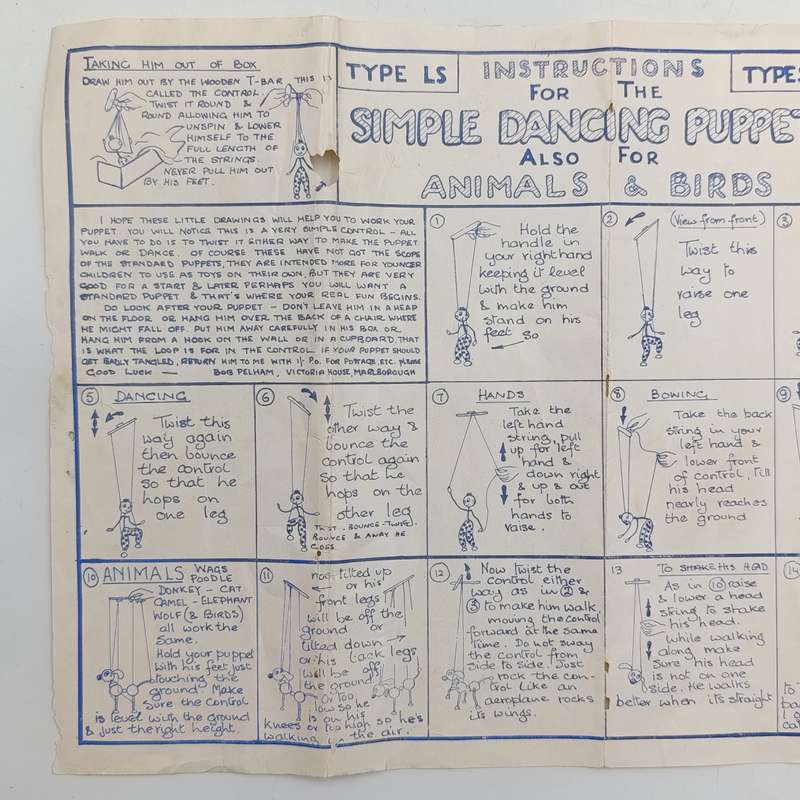 TAKING HIM OUT OF BOX
DRAW HIM OUT BY THE WOODEN T-BAR, THIS IS
CALLED THE CONTROL.
TWIST IT ROUND &
ROUND ALLOWING HIM TO
UNSPIN & LOWER
HIMSELF TO THE
FULL LENGTH OF
THE STRINGS.
NEVER PULL HIM OUT
BY HIS FEET.
TYPE LS
INSTRUCTIONS
FOR THE
SIMPLE DANCING PUPPET
ALSO FOR
ANIMALS & BIRDS
TYPES
I HOPE THESE LITTLE DRAWINGS WILL HELP YOU TO WORK YOUR
PUPPET. YOU WILL NOTICE THIS IS A VERY SIMPLE CONTROL - ALL
YOU HAVE TO DO IS TO TWIST IT EITHER WAY TO MAKE THE PUPPET
WALK OR DANCE. OF COURSE THESE HAVE NOT GOT THE SCOPE
OF THE STANDARD PUPPETS, THEY ARE INTENDED MORE FOR YOUNGER
CHILDREN TO USE AS TOYS ON THEIR OWN, BUT THEY ARE VERY
GOOD FOR A START & LATER PERHAPS YOU WILL WANT A
STANDARD PUPPET & THAT'S WHERE YOUR REAL FUN BEGINS.
DO LOOK AFTER YOUR PUPPET - DON'T LEAVE HIM IN A HEAP
ON THE FLOOR OR HANG HIM OVER THE BACK OF A CHAIR WHERE
HE MIGHT FALL OFF. PUT HIM AWAY CAREFULLY IN HIS BOX OR
HANG HIM FROM A HOOK ON THE WALL OR IN A CUPBOARD. THAT
IS WHAT THE LOOP IS FOR IN THE CONTROL. IF YOUR PUPPET SHOULD
GET BADLY TANGLED, RETURN HIM TO ME WITH 1/- P.O. FOR POSTAGE, ETC. PLEASE
GOOD LUCK — BOB PELHAM, VICTORIA HOUSE, MARLBOROUGH
1
Hold the
handle in
your right hand
keeping it level
with the ground
& make him
stand on his
feet so
2
(View from front)
Twist this
way to
raise one
leg
3
5 DANCING
Twist this
way again
then bounce
the control
so that he
hops on
one leg
6
Twist the
other way &
bounce the
control again
so that he
hops on the
other leg
TWIST - BOUNCE - TWIST -
BOUNCE & AWAY HE
GOES
7 HANDS
Take the
left hand
string, pull
up for left
hand &
down right
& up & out
for both
hands to
raise.
8 BOWING
Take the back
string in your
left hand &
lower front
of control, till
his head
nearly reaches
the ground
9
10 ANIMALS WAGS
POODLE
DONKEY - CAT
CAMEL - ELEPHANT
WOLF (& BIRDS)
all work the
same.
Hold your puppet
with his feet just
touching the
ground. Make
sure the control
is level with the ground
& just the right height.
11
not tilted up
or his
front legs
will be off the
ground or
tilted down
or his back legs
will be off
the ground
or too
low so he
is on his
knees or too high so he's
walking in the air.
12
Now twist the
control either
way as in 2 &
3 to make him walk,
moving the control
forward at the same
time. Do not sway
the control from
side to side. Just
rock the con-
trol like an
aeroplane rocks
its wings.
13 TO SHAKE HIS HEAD
As in 10 raise
& lower a head
string to shake
his head.
while walking
along make
sure his head
is not on one
side. He walks
better when it's straight
14